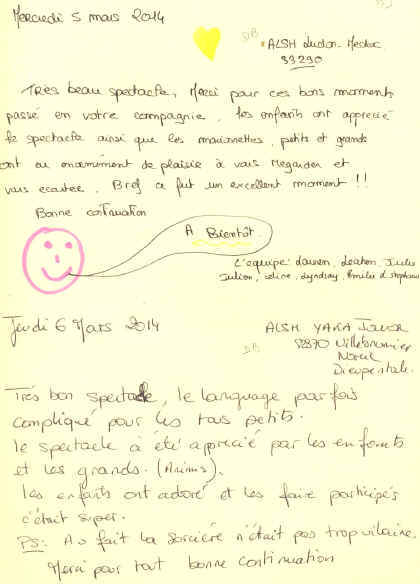 Mercredi 5 mars 2014
DB
ALSH Ludon-Medoc
33290
Très beau spectacle, Merci pour ces bons moments
passé en votre compagnie, les enfants ont apprecié
le spectacle ainsi que les marionnettes, petits et grands
ont eu enormément de plaisir à vous regarder et
vous ecouter. Bref ce fut un excellent moment !!
Bonne continuation
A Bientôt
L'equipe: Julie
Julien, celine, Emilie et stephanie
Jeudi 6 Mars 2014
ALSH YAKA
DB
82370 Villebrumier
Très bon spectacle, le language parfois
compliqué pour les tous petits.
le spectacle à été apprecié par les enfants
et les grands. (Anims).
les enfants ont adoré et les faire participés
c'était super.
PS: Au fait la sorcière n'était pas trop vilaine.
Merci pour tout bonne continuation